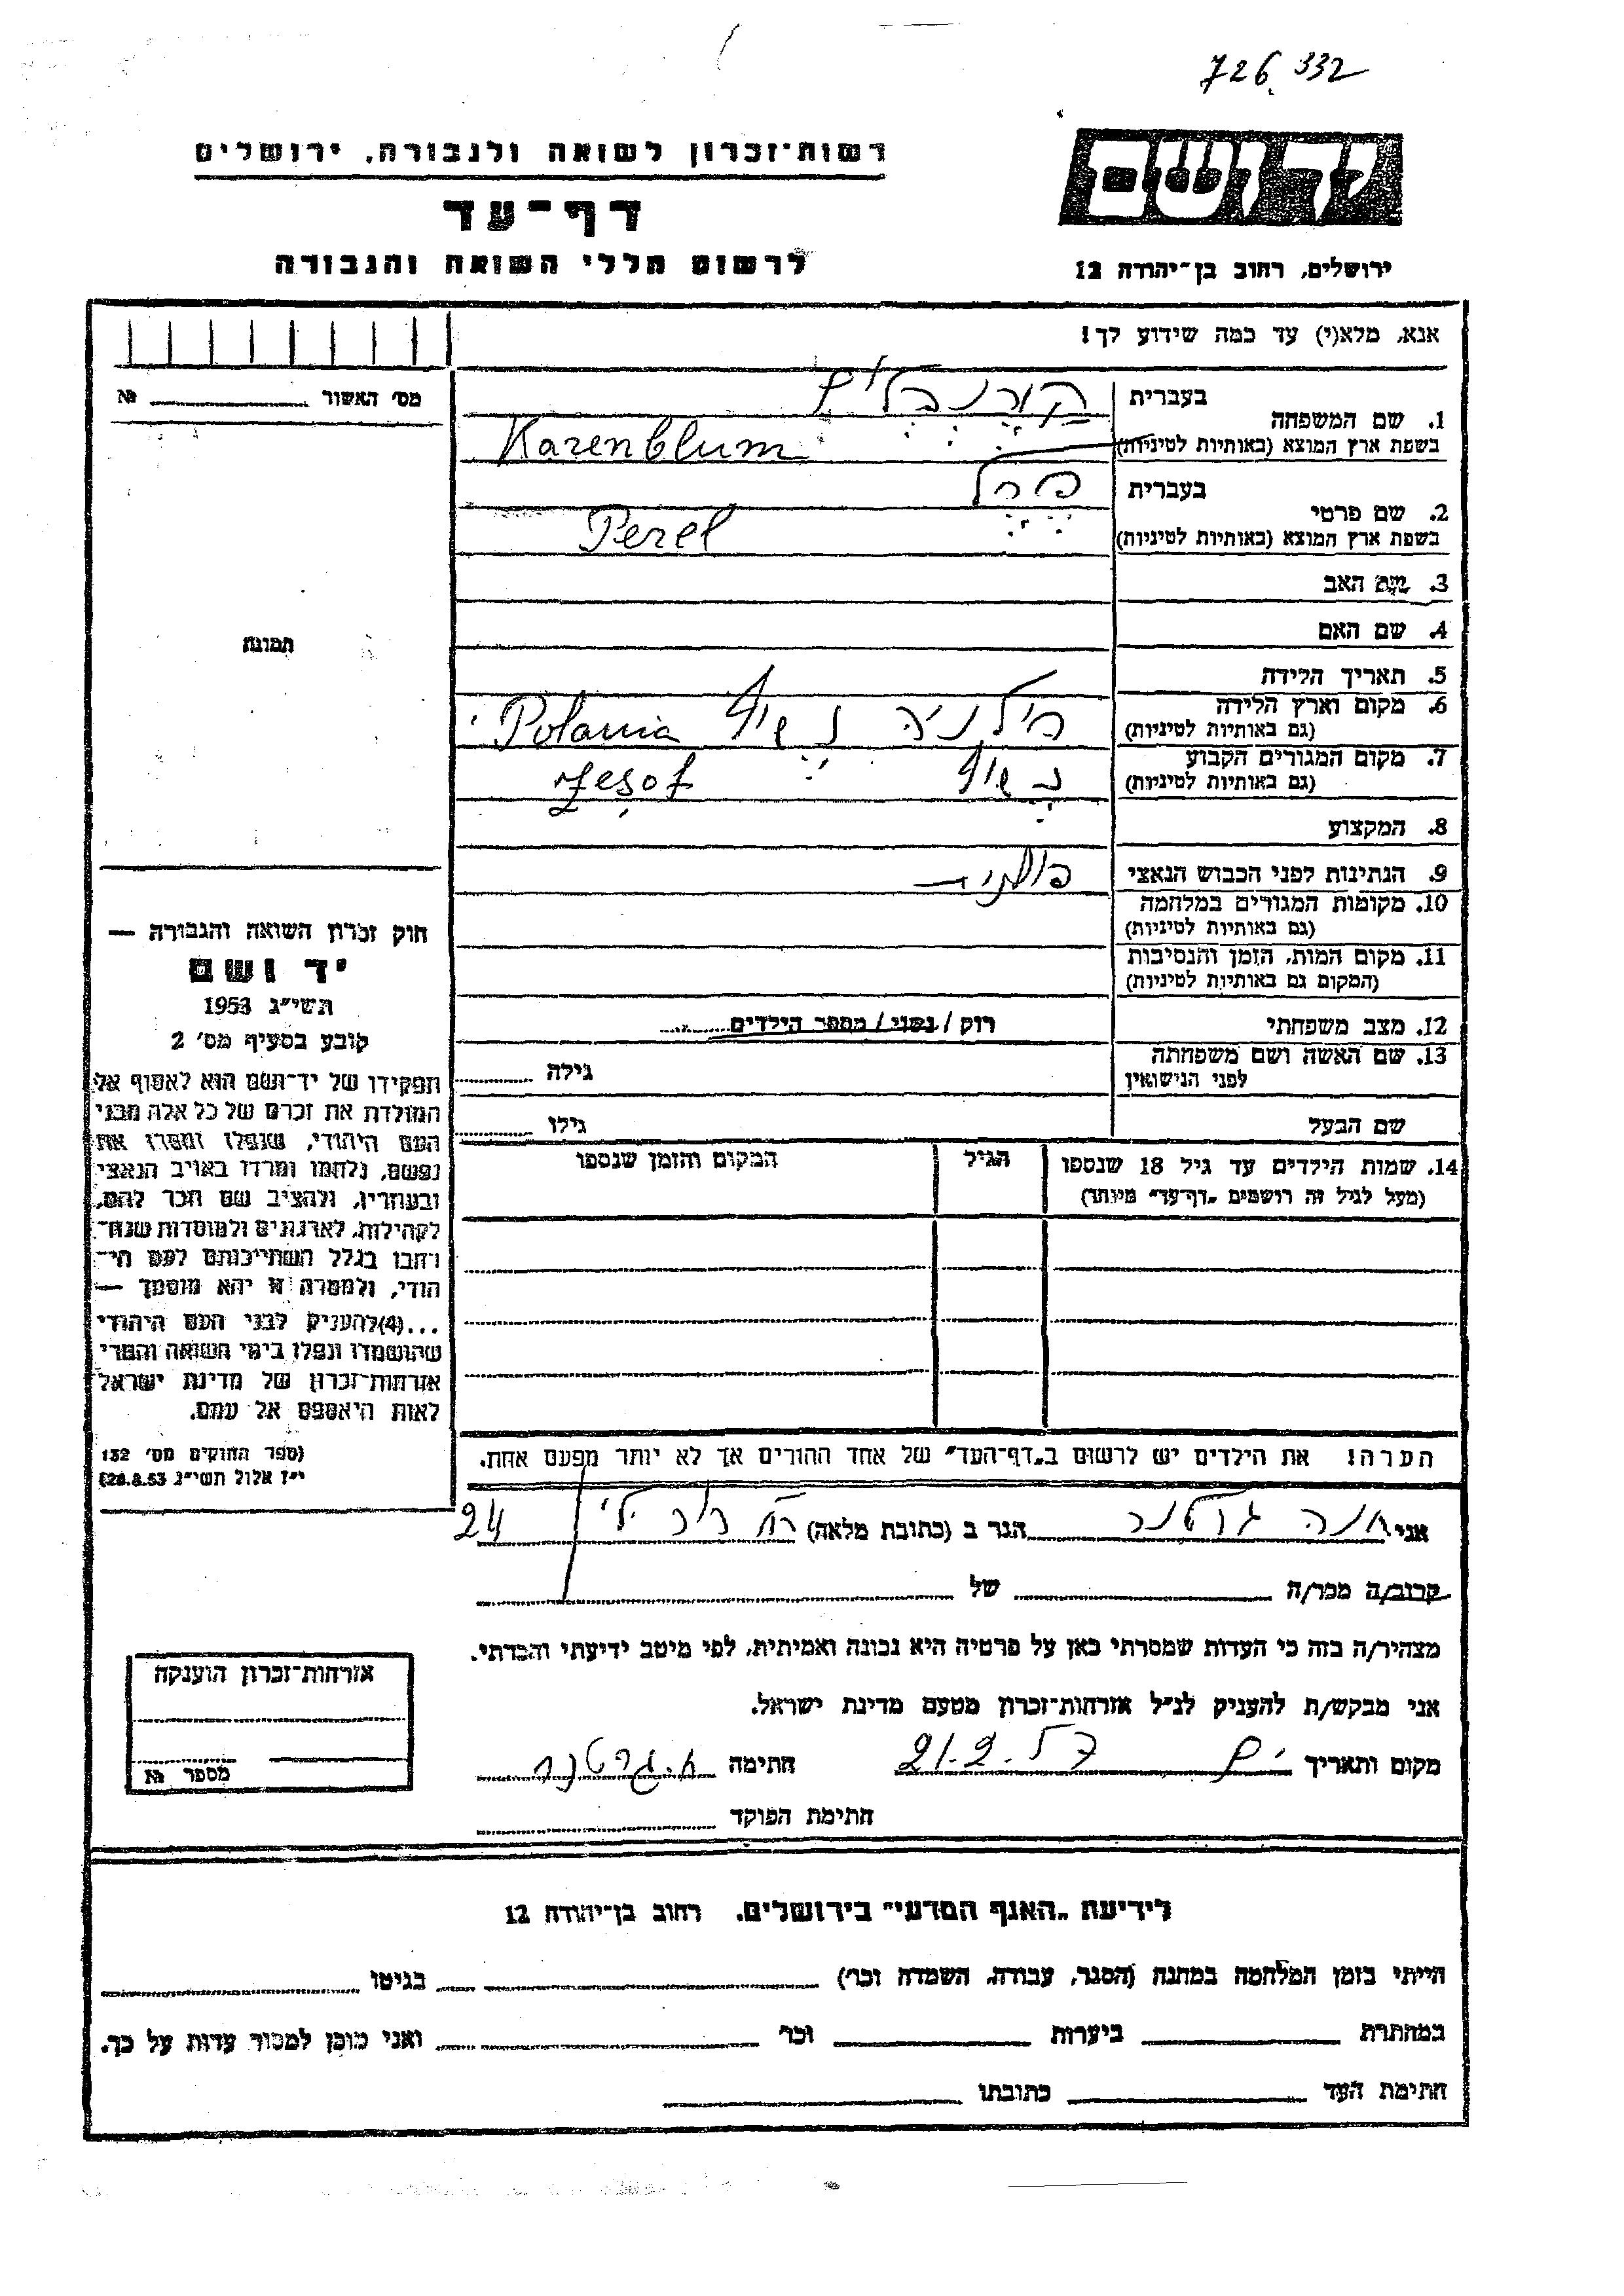 726332
רשות־זכרון לשואה ולגבורה, ירושלים
יד ושם
דף־עד
לרשום חללי השואה והגבורה
ירושלים, רחוב בן־יהודה 12
אנא, מלא(י) עד כמה שידוע לך!
מס׳ האשור № 
בעברית
1. שם המשפחה
קורנבלום
בשפת ארץ המוצא (באותיות לטיניות)
Karenblum
בעברית
2. שם פרטי
פרל
בשפת ארץ המוצא (באותיות לטיניות)
Perel
3. שם האב
4. שם האם
תמונה
5. תאריך הלידה
6. מקום וארץ הלידה
(גם באותיות לטיניות)
Polania
7. מקום המגורים הקבוע
(גם באותיות לטיניות)
8. המקצוע
9. הנתינות לפני הכבוש הנאצי
פולנית
10. מקומות המגורים במלחמה
(גם באותיות לטיניות)
11. מקום המות, הזמן והנסיבות
(המקום גם באותיות לטיניות)
12. מצב משפחתי רוק / נשוי / מספר הילדים
13. שם האשה ושם משפחתה
לפני הנישואין
גילה
שם הבעל גילו
14. שמות הילדים עד גיל 18 שנספו הגיל המקום והזמן שנספו
(מעל לגיל זה רושמים „דף־עד״ מיוחד)
חוק זכרון השואה והגבורה —
יד ושם
תשי״ג 1953
קובע בסעיף מס׳ 2
תפקידו של יד־ושם הוא לאסוף אל
המולדת את זכרם של כל אלה מבני
העם היהודי, שנפלו ומסרו את
נפשם, נלחמו ומרדו באויב הנאצי
ובעוזריו, ולהציב שם וזכר להם,
לקהילות, לארגונים ולמוסדות שנח־
רבו בגלל השתייכותם לעם הי־
הודי, ולמטרה זו יהא מוסמך —
...(4) להעניק לבני העם היהודי
שהושמדו ונפלו בימי השואה והמרי
אזרחות־זכרון של מדינת ישראל
לאות היאספם אל עמם.
(ספר החוקים מס׳ 132
י״ז אלול תשי״ג 28.8.53)
הערה! את הילדים יש לרשום ב„דף־העד״ של אחד ההורים אך לא יותר מפעם אחת.
אני חנה גרטנר הגר ב (כתובת מלאה) 24
קרוב/ה מכר/ה של
מצהיר/ה בזה כי העדות שמסרתי כאן על פרטיה היא נכונה ואמיתית, לפי מיטב ידיעתי והכרתי.
אני מבקש/ת להעניק לנ״ל אזרחות־זכרון מטעם מדינת ישראל.
מקום ותאריך 21.2. חתימה ח. גרטנר
חתימת הפוקד
אזרחות־זכרון הוענקה
מספר №
לידיעת „האגף המדעי״ בירושלים, רחוב בן־יהודה 12
הייתי בזמן המלחמה במחנה (הסגר, עבודה, השמדה וכו׳) בגיטו
במחתרת ביערות וכו׳ ואני מוכן למסור עדות על כך.
חתימת העד כתובתו